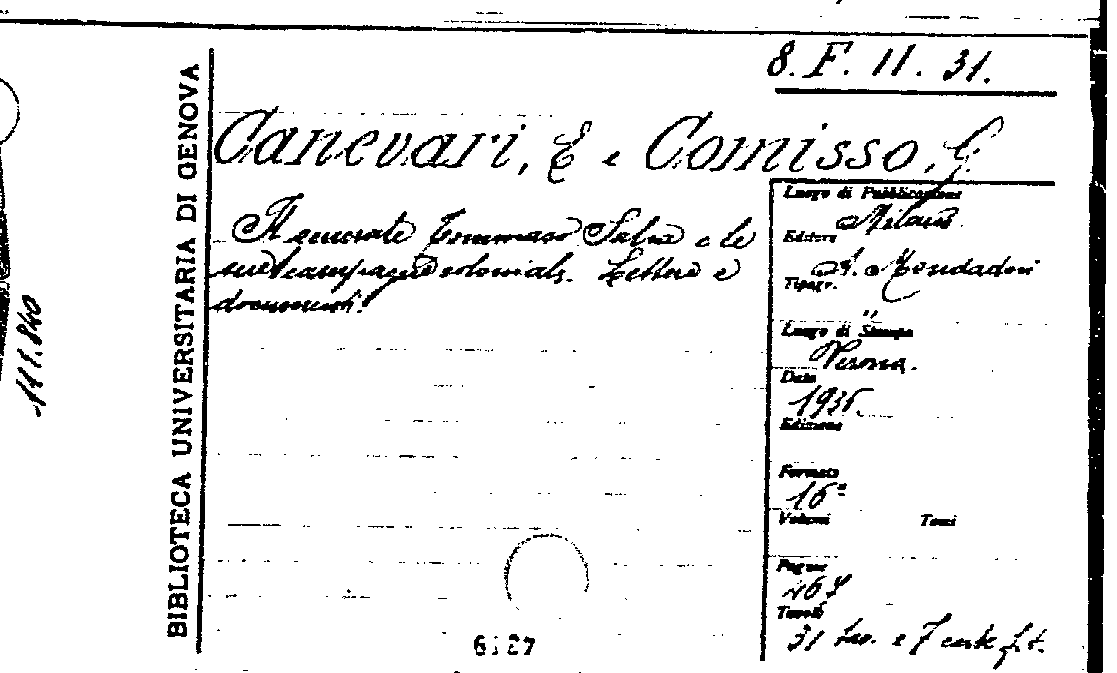 8. F. 11. 31.
BIBLIOTECA UNIVERSITARIA DI GENOVA
111.840
Canevari, E e Comisso, G.
Il generale Tommaso Salsa e le
sue campagne coloniali. Lettere e
documenti.
Luogo di Pubblicazione
Milano.
Editore
A. Mondadori
Tipogr.
"
Luogo di Stampa
Verona.
Data
1935.
Edizione
Formato
16°
Volumi Tomi
Pagine
Tavole
31 tav. e 7 carte f.t.
6127